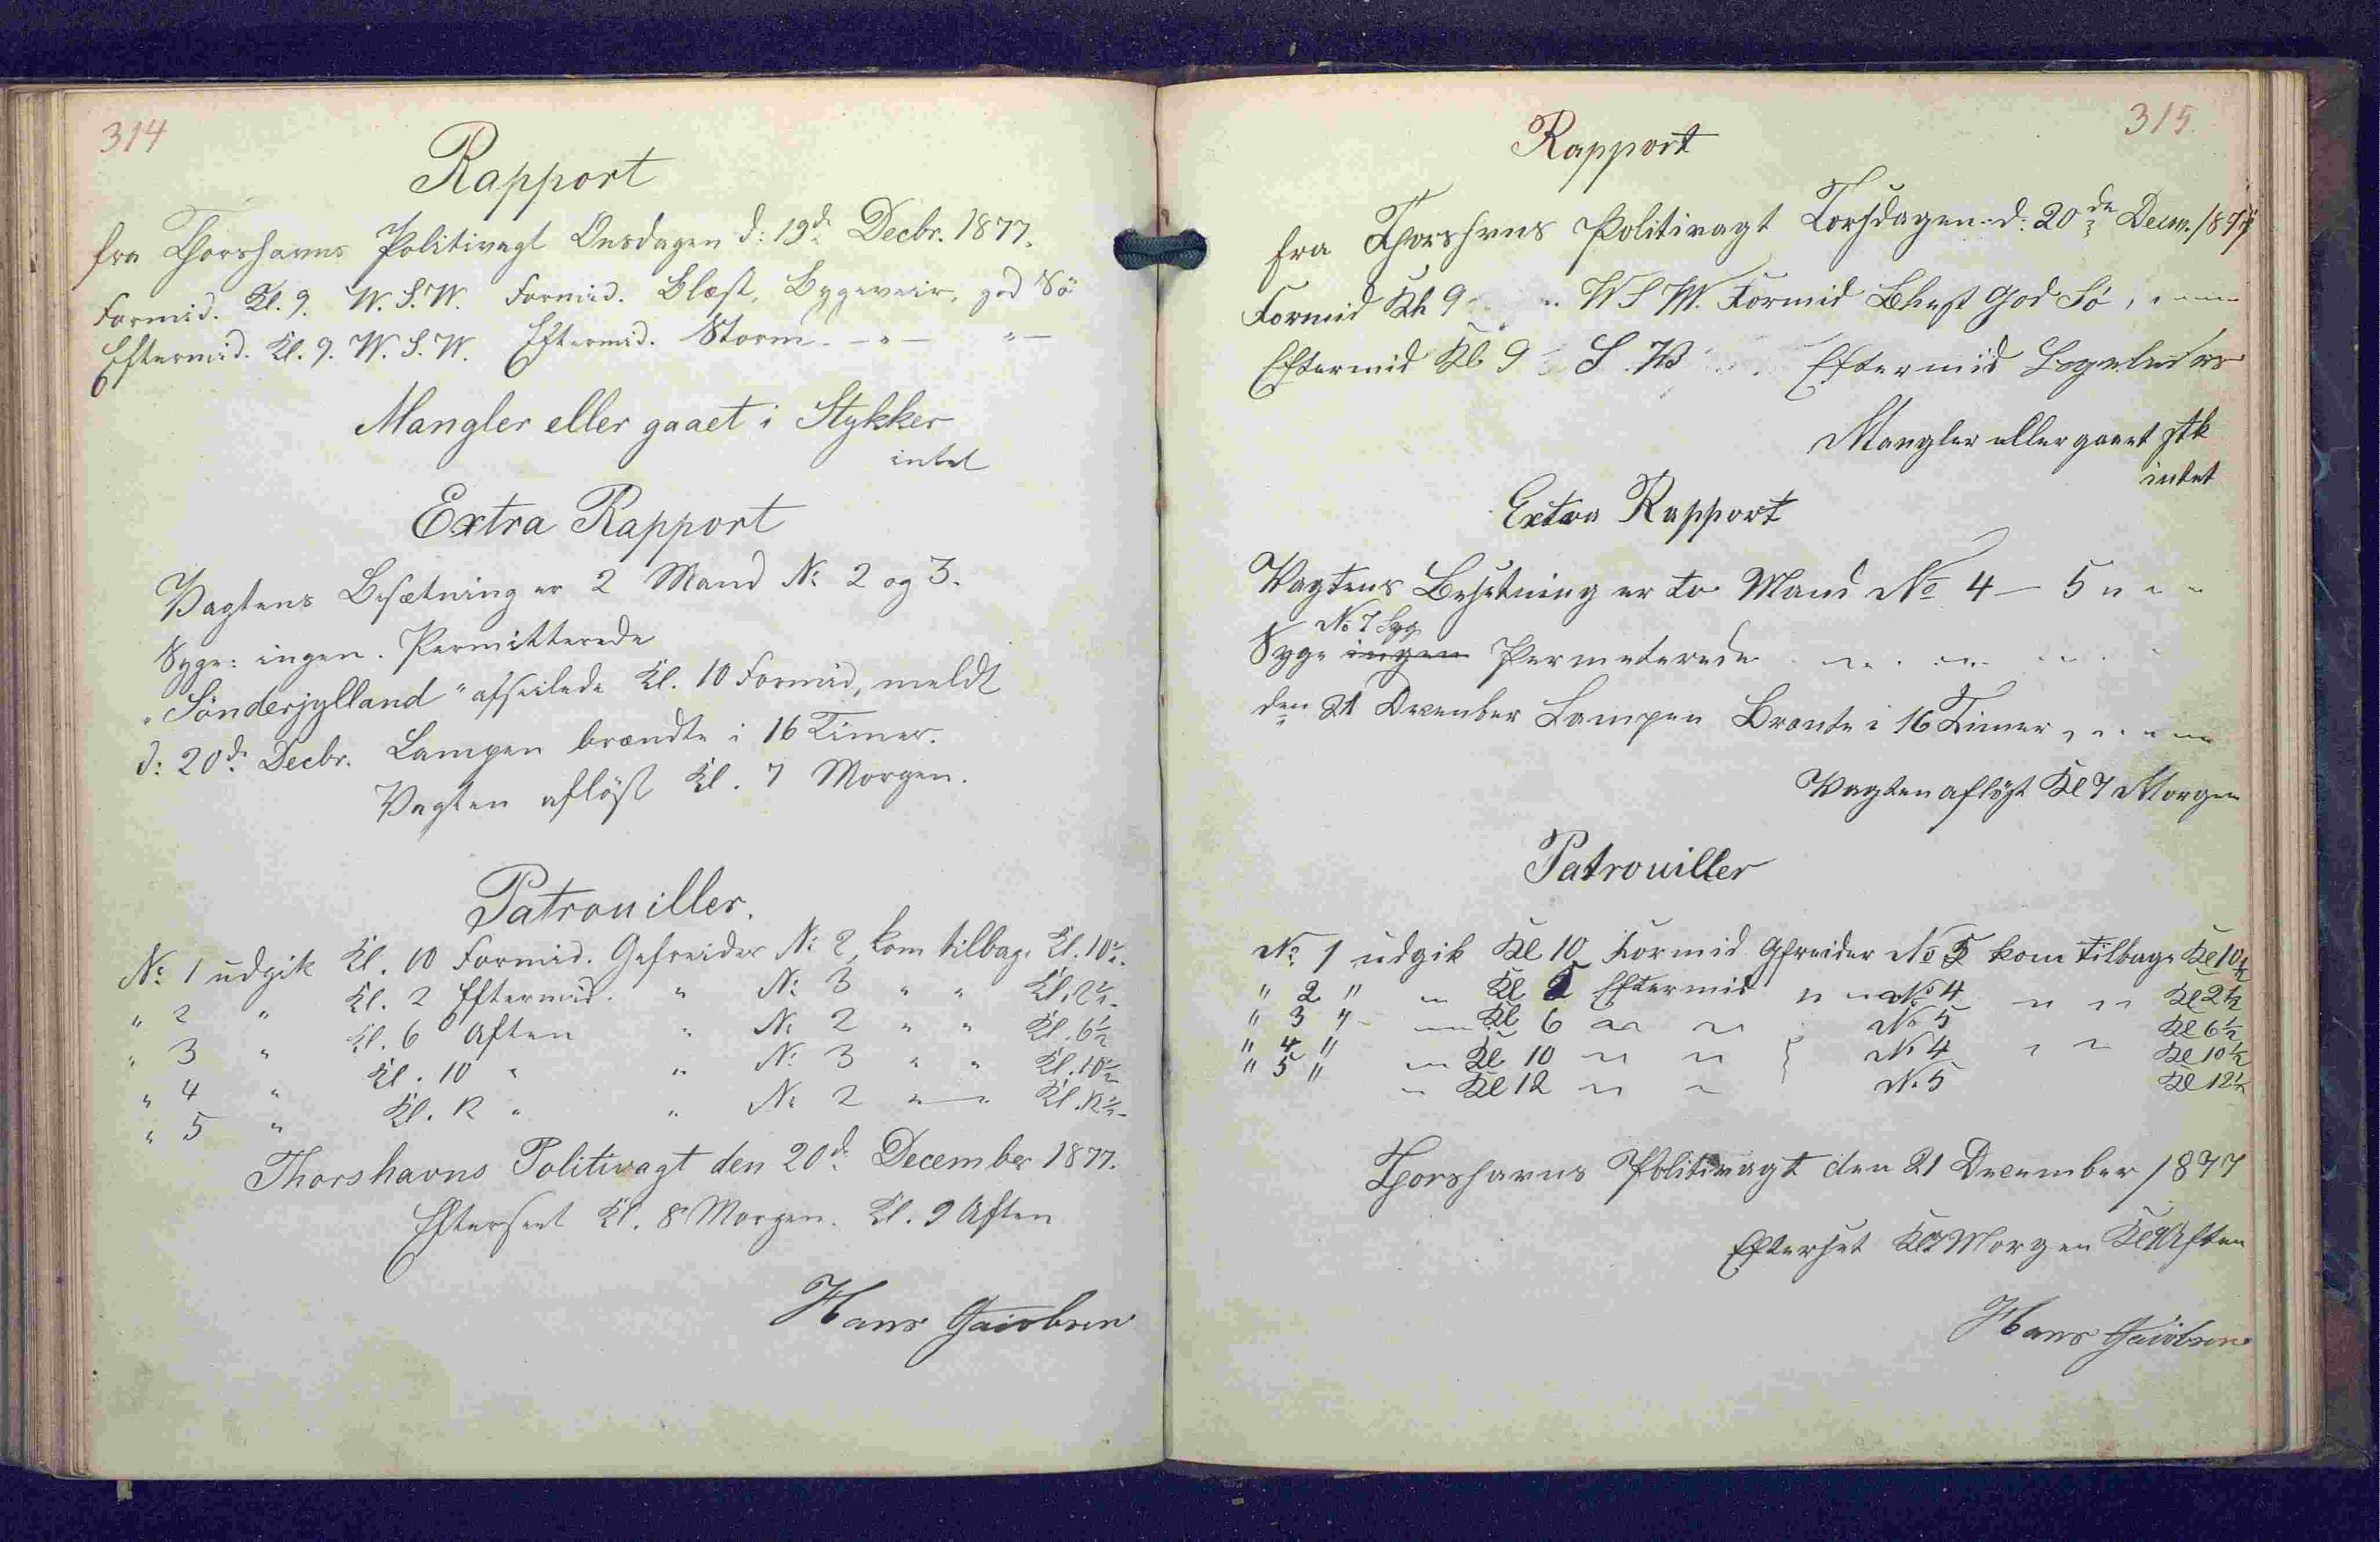 314
Rapport
fra Thorshavns Politivagt Onsdagen d: 19d. Decbr. 1877.
Formid. Kl. 9. W.S.W. Formid. Blæst, Bygeveir, god Sö
Eftermid. Kl. 9. W.S.W. Eftermid. Storm. — " — " —
Mangler eller gaaet i Stykker
intet
Extra Rapport
Vagtens Besætning er 2 Mand No 2 og 3.
Syge: ingen. Permitterede
"Sönderjylland" afseilede Kl. 10 Formid, meldt
d: 20d. Decbr. Lampen brændte i 16 Timer.
Vagten aflöst Kl. 7 Morgen.
Patrouiller.
No 1 udgik Kl. 10 Formid. Gefreider No 2, kom tilbage Kl. 10½.
" 2 " Kl. 2 Eftermid. " No 3 " " Kl. 2½.
" 3 " Kl. 6 Aften " No 2 " " Kl. 6½
" 4 " Kl. 10 " " No 3 " " Kl. 10½
" 5 " Kl. 12 " " No 2 " — " Kl. 12½.
Thorshavns Politivagt den 20d. December 1877.
Efterseet Kl. 8 Morgen. Kl. 9 Aften
Hans Jacobsen
315.
Rapport
fra Thorshvns Politivagt Torsdagen d. 20de Decm. 1877
Formid Kl 9 " W S W. Formid Blest God Sö,
Eftermid Kl 9 S. W Eftermid
Mangler eller gaaet Stk
intet
Extra Rapport
Vagtens Besetning er to Mand No 4 — 5 " " "
No 7 Syg
Syge ingen Permeterede
den 21 December Lampen Brænte i 16 Timer
Vagten aflöst Kl 7 Morgen
Patrouiller
No. 1 udgik Kl 10 Formid Gfreider No 5 kom tilbage Kl 10½
" 2 " " Kl 2 Eftermid " " No 4 " " Kl 2½
" 3 " " Kl 6 " " No 5 Kl 6½
" 4 " " Kl 10 " " No 4 " " Kl 10½
" 5 " " Kl 12 " " No 5 Kl 12½
Thorshavns Politivagt den 21 December 1877
Efterset Morgen Aften
Hans Jacobsen